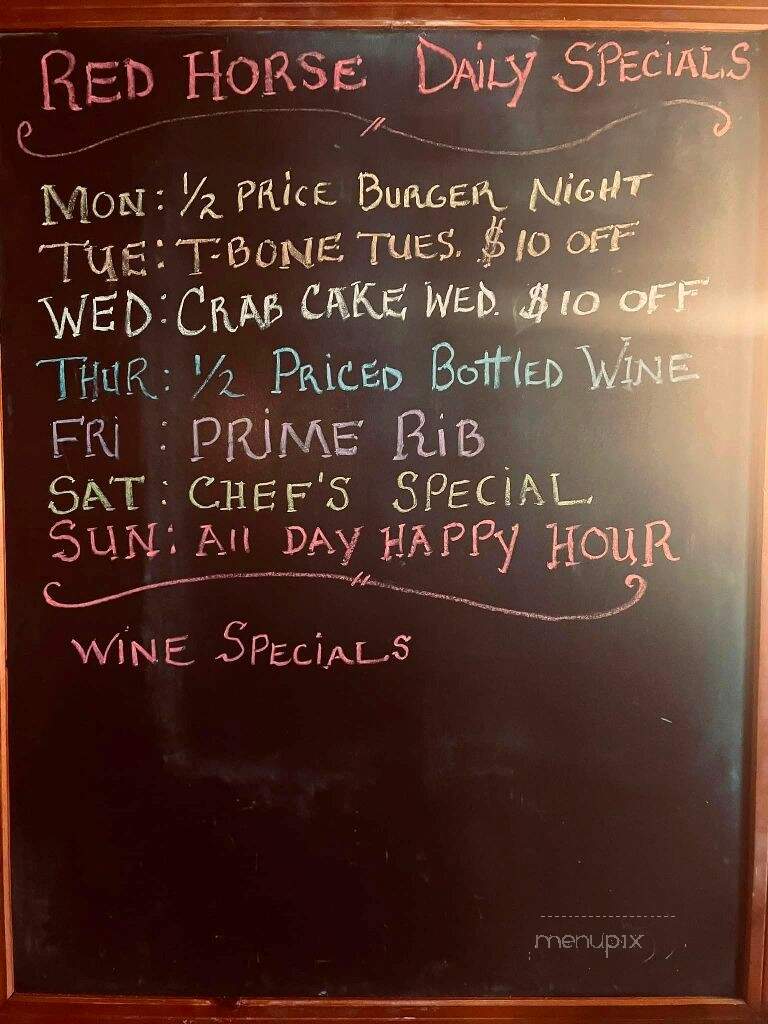 RED HORSE DAILY SPECIALS
MON: 1/2 PRICE BURGER NIGHT
TUE: T-BONE TUES. $10 OFF
WED: CRAB CAKE WED. $10 OFF
THUR: 1/2 PRICED BOTTLED WINE
FRI : PRIME RIB
SAT: CHEF'S SPECIAL
SUN: All DAY HAPPY HOUR
WINE SPECIALS
menupix